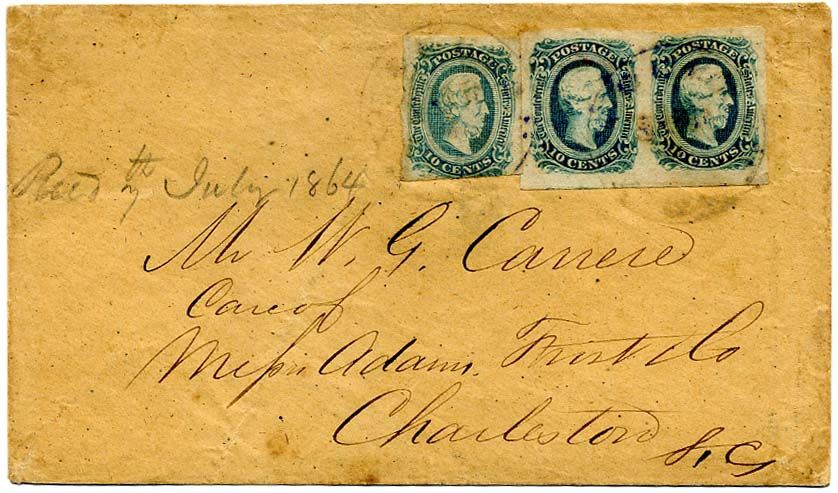 POSTAGE
The Confederate States America
10 CENTS
POSTAGE
The Confederate States America
10 CENTS
POSTAGE
The Confederate States America
10 CENTS
Recd 7th July 1864
Mr W. G. Carrere
Care of
Messrs Adams, Frost & Co
Charleston
S, C